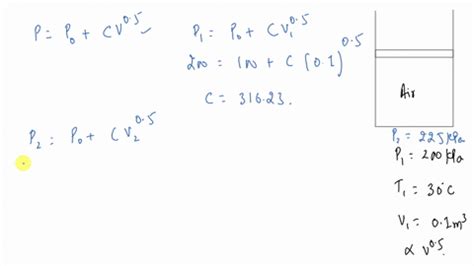 P = P₀ + CV^0.5 ✓
P₁ = P₀ + CV₁^0.5
200 = 100 + C (0.1)^0.5
C = 316.23.
P₂ = P₀ + CV₂^0.5
Air
P₂ = 225 kPa
P₁ = 200 kPa
T₁ = 30°C
V₁ = 0.1m³
∝ V^0.5.